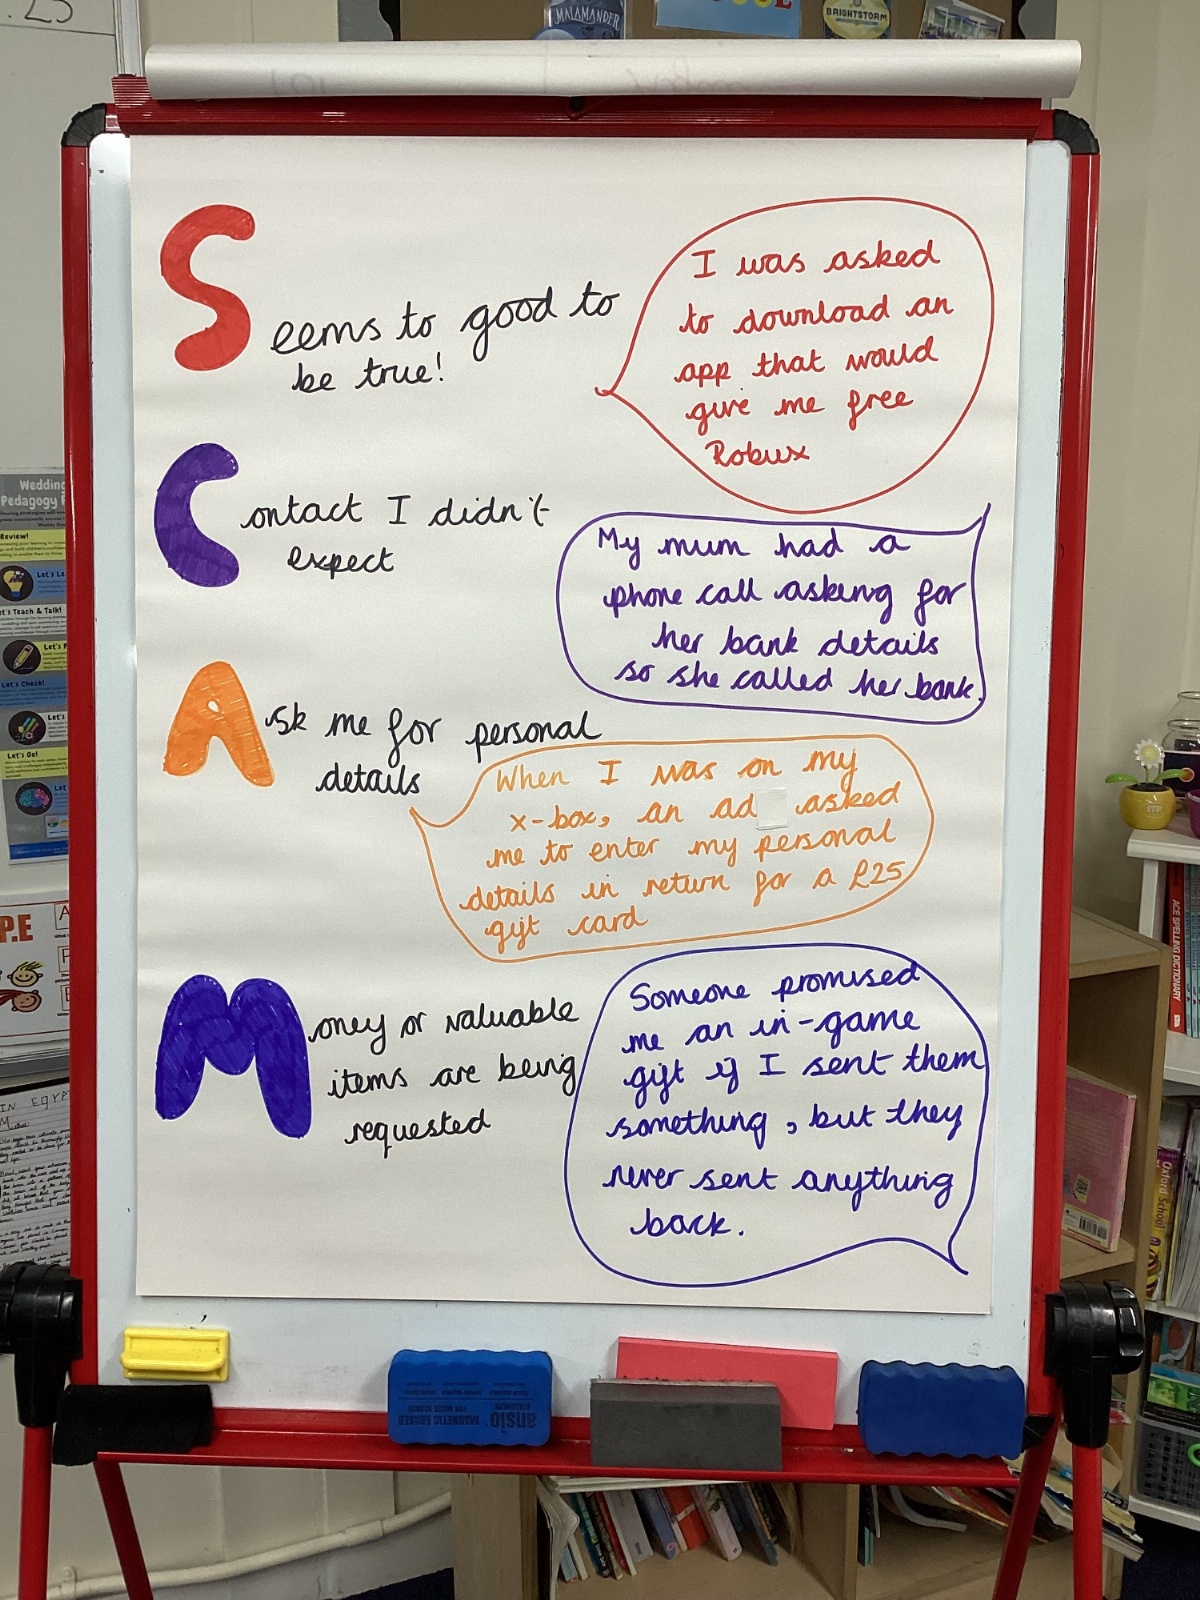 MALAMANDER
BRIGHTSTORM
Seems to good to
be true!
I was asked
to download an
app that would
give me free
Robux
Contact I didn't
expect
My mum had a
phone call asking for
her bank details
so she called her bank.
Ask me for personal
details
When I was on my
x-box, an ad asked
me to enter my personal
details in return for a £25
gift card
Money or valuable
items are being
requested
Someone promised
me an in-game
gift if I sent them
something, but they
never sent anything
back.
Wedding
Pedagogy
Review!
Let's Teach & Talk!
Let's Check!
Let's Go!
P.E
IN EGYP
ansio
MAGNETIC ERASER
ACE SPELLING DICTIONARY
Oxford School